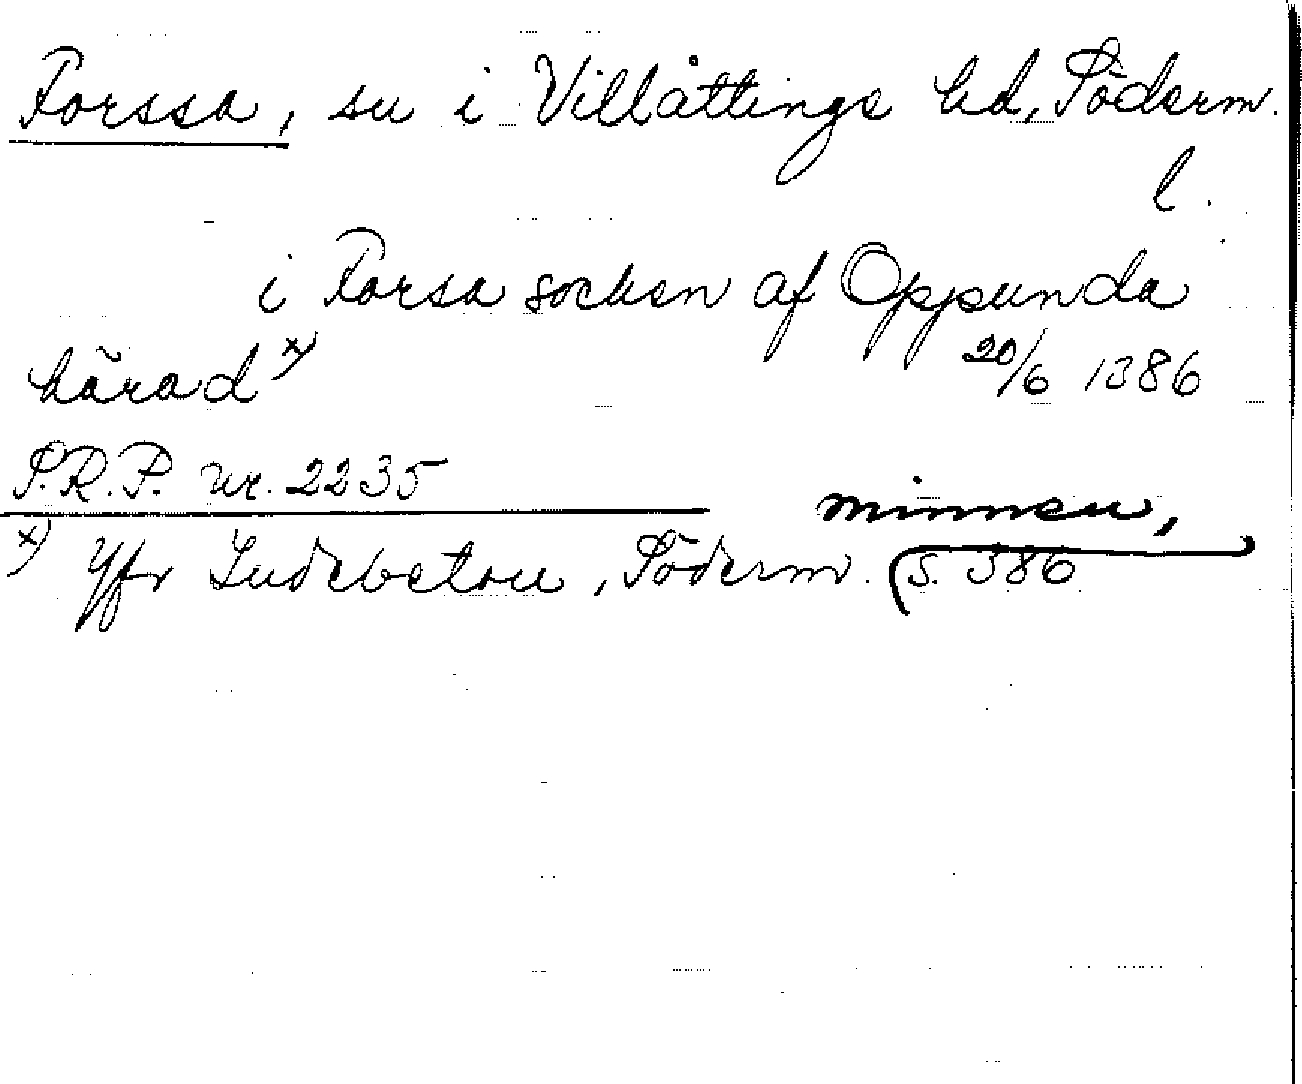 Forssa, sn i Villåttinge hd, Söderm.
l.
i Forsa socken af Oppunda
härad x)
20/6 1386
S.R.P. nr. 2235
minnen,
x) Jfr Indebetou, Söderm. s. 386